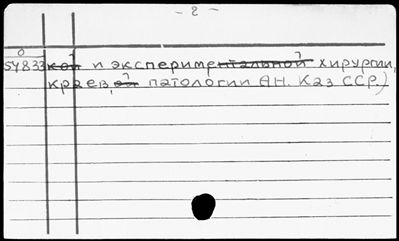 - 2 -
0
54833 кой и экспериментальной хирургии,
краев.ой патологии АН. Каз ССР.)